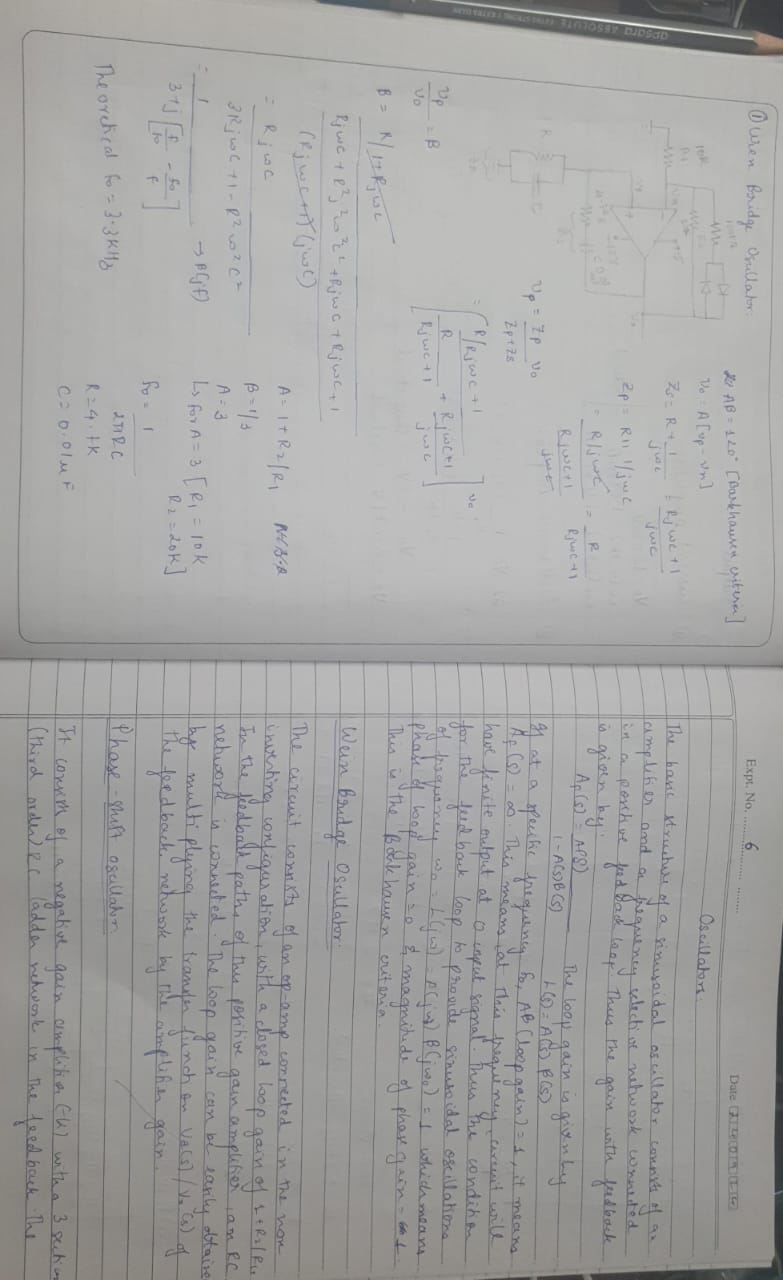 apsara ABSOLUTE EXTRA STRONG EXTRA DARK
① Wien Bridge Oscillator:
10K
R1
R
C
Zp
V0
AB = 1∠0° [Barkhausen criteria]
V0 = A[vp - vn]
Zs = R + 1/jωc = Rjωc+1/jωc
Zp = R11 1/jωc
= R/jωc / Rjωc+1/jωc = R / Rjωc+1
vp = Zp / Zp+Zs V0
= [R/Rjωc+1 / R/Rjωc+1 + Rjωc+1/jωc] v0
vp/v0 = B
B = R/1+Rjωc
Rjωc + R²j²ω²c² + Rjωc + Rjωc+1
(Rjωc+1)(jωc)
= Rjωc
3Rjωc+1-R²ω²C²
= 1 / 3+j[f/f0 - f0/f] → B(jf)
Theoretical f0 = 3.3KHz
A = 1+R2/R1
B = 1/3
A = 3
↳ for A=3 [R1 = 10K
R2 = 20K]
f0 = 1 / 2πRC
R = 4.7K
C = 0.01μF
Expt. No. 6
Date
Oscillators
The basic structure of a sinusoidal oscillator consists of an
amplifier and a frequency selective network connected
in a positive feedback loop. Thus the gain with feedback
is given by:
Af(s) = A(s) / 1-A(s)B(s) The loop gain is given by
L(s) = A(s) β(s)
If at a specific frequency f0, AB (loop gain) = 1, it means
Af(s) = ∞. This means, at this frequency circuit will
have finite output at 0 input signal. Thus the condition
for the feedback loop to provide sinusoidal oscillations
of frequency ω0 = L(jω) = A(jω0) β(jω0) = 1 which means
phase of loop gain = 0 & magnitude of phase gain = 1.
This is the Barkhausen criteria.
Wein Bridge Oscillator:
The circuit consists of an op-amp connected in the non
inverting configuration, with a closed loop gain of 1+R2/R1.
In the feedback path of this positive gain amplifier, an RC
network is connected. The loop gain can be easily obtaine
by multiplying the transfer function Va(s)/Vo(s) of
the feedback network by the amplifier gain.
Phase-shift oscillator
It consists of a negative gain amplifier (-K) with a 3 section
(third order) RC ladder network in the feedback. The